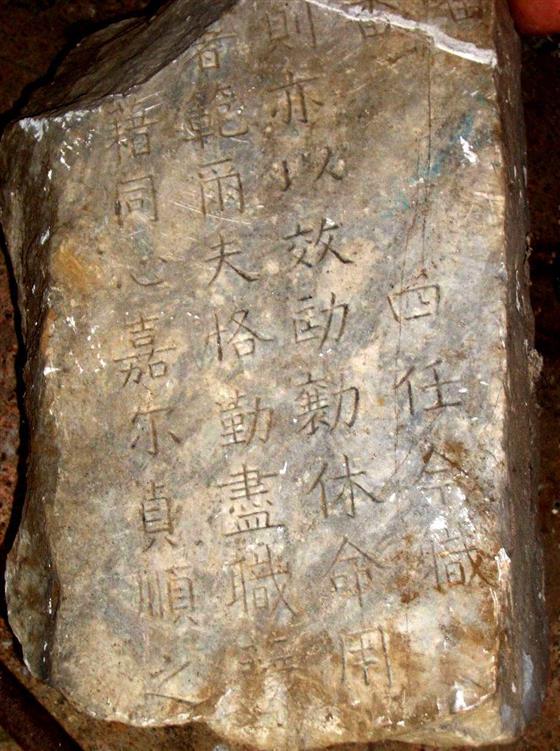 四任今職
則亦以效勤勷休命用
範爾夫恪勤盡職
藉同心嘉尔貞順之